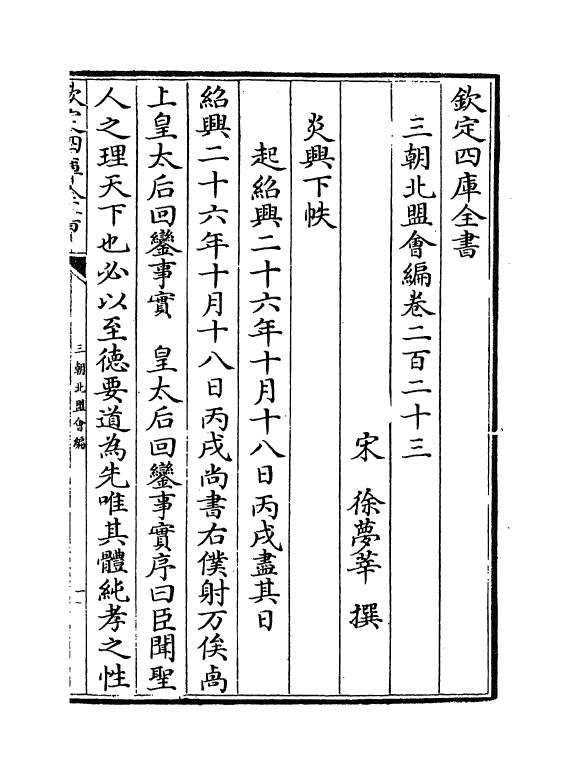 欽定四庫全書
三朝北盟會編卷二百二十三
宋　徐夢莘　撰
炎興下帙
起紹興二十六年十月十八日丙戌盡其日
紹興二十六年十月十八日丙戌尚書右僕射万俟卨
上皇太后回鑾事實　皇太后回鑾事實序曰臣聞聖
人之理天下也必以至德要道為先唯其體純孝之性
欽定四庫全書
三朝北盟會編
一